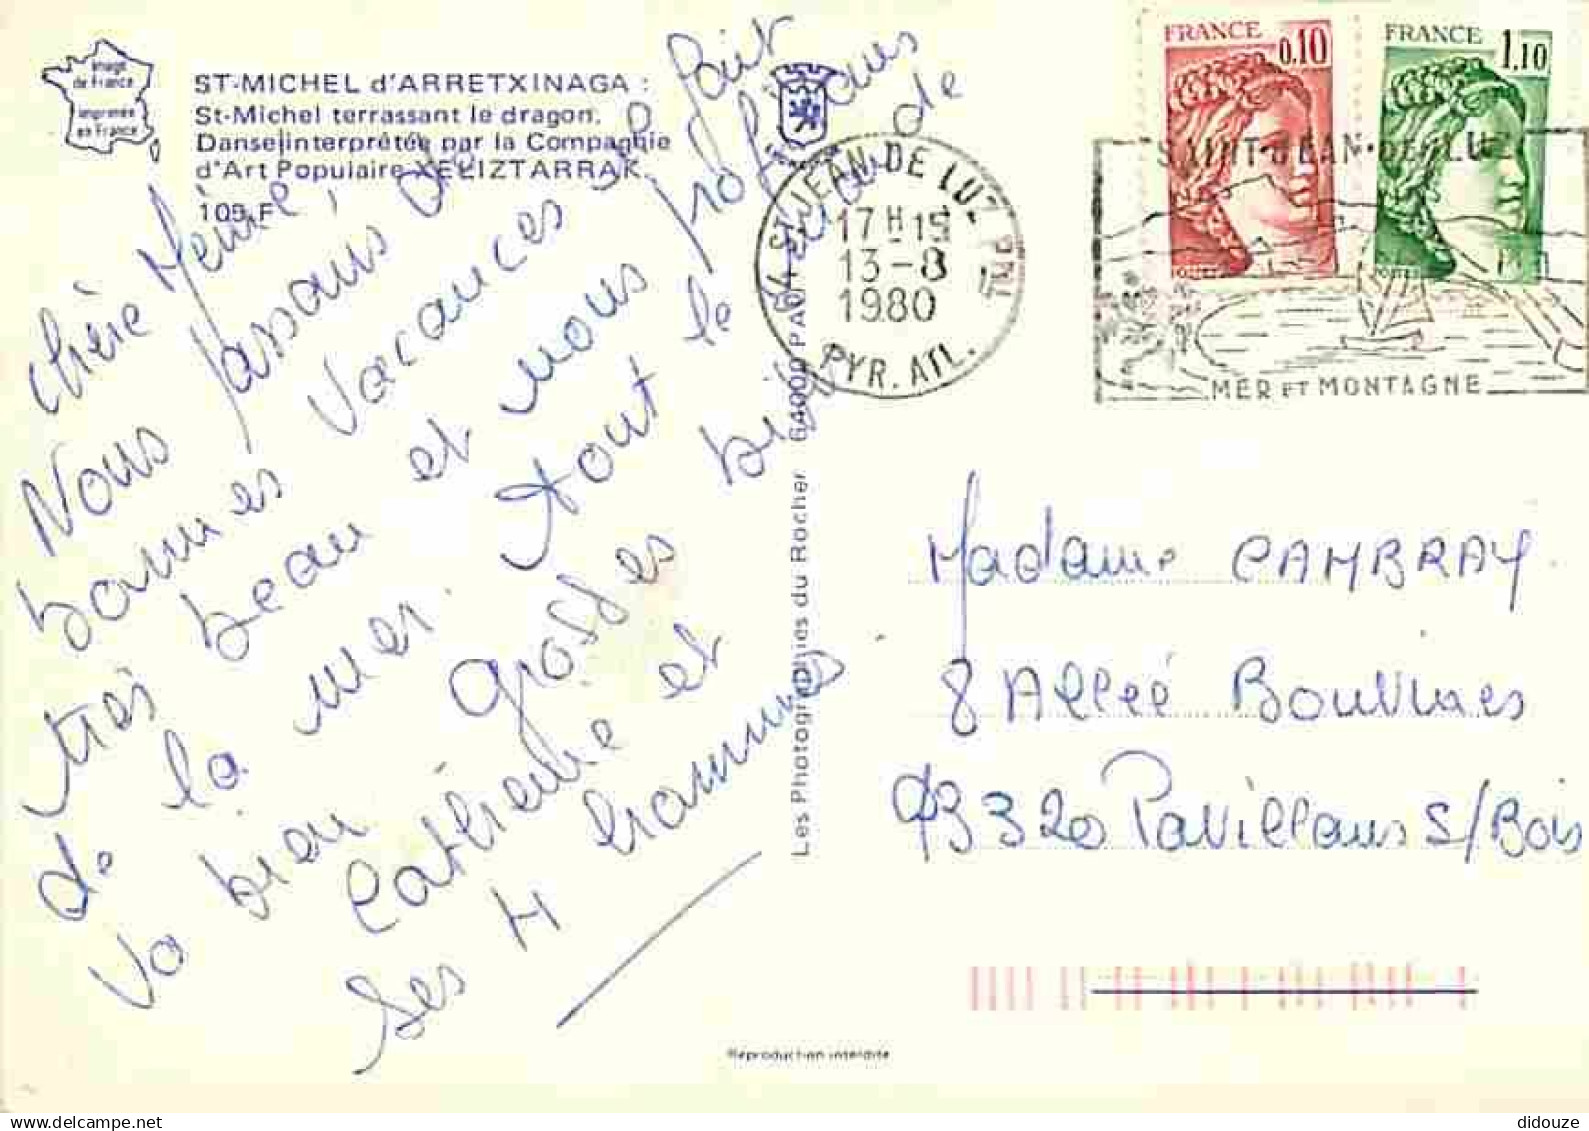 image
de France
imprimée
en France
ST-MICHEL d'ARRETXINAGA :
St-Michel terrassant le dragon.
Danse interprétée par la Compagnie
d'Art Populaire XELIZTARRAK.
105 F
Chère Mémé,
Nous passons de
bonnes vacances il fait
très beau et nous profitons
de la mer. Tout le monde
va bien grosses bises de
Catherine et
ses 4 hommes
Les Photographies du Rocher 64000 PAU
64 ST-JEAN DE LUZ PPAL
17H-15
13-8
1980
PYR. ATL.
FRANCE 0,10
FRANCE 1,10
POSTES
POSTES
SAINT-JEAN-DE-LUZ
MER ET MONTAGNE
Madame CAMBRAY
8 Allée Bouvines
93320 Pavillons S/Bois
Reproduction interdite
didouze